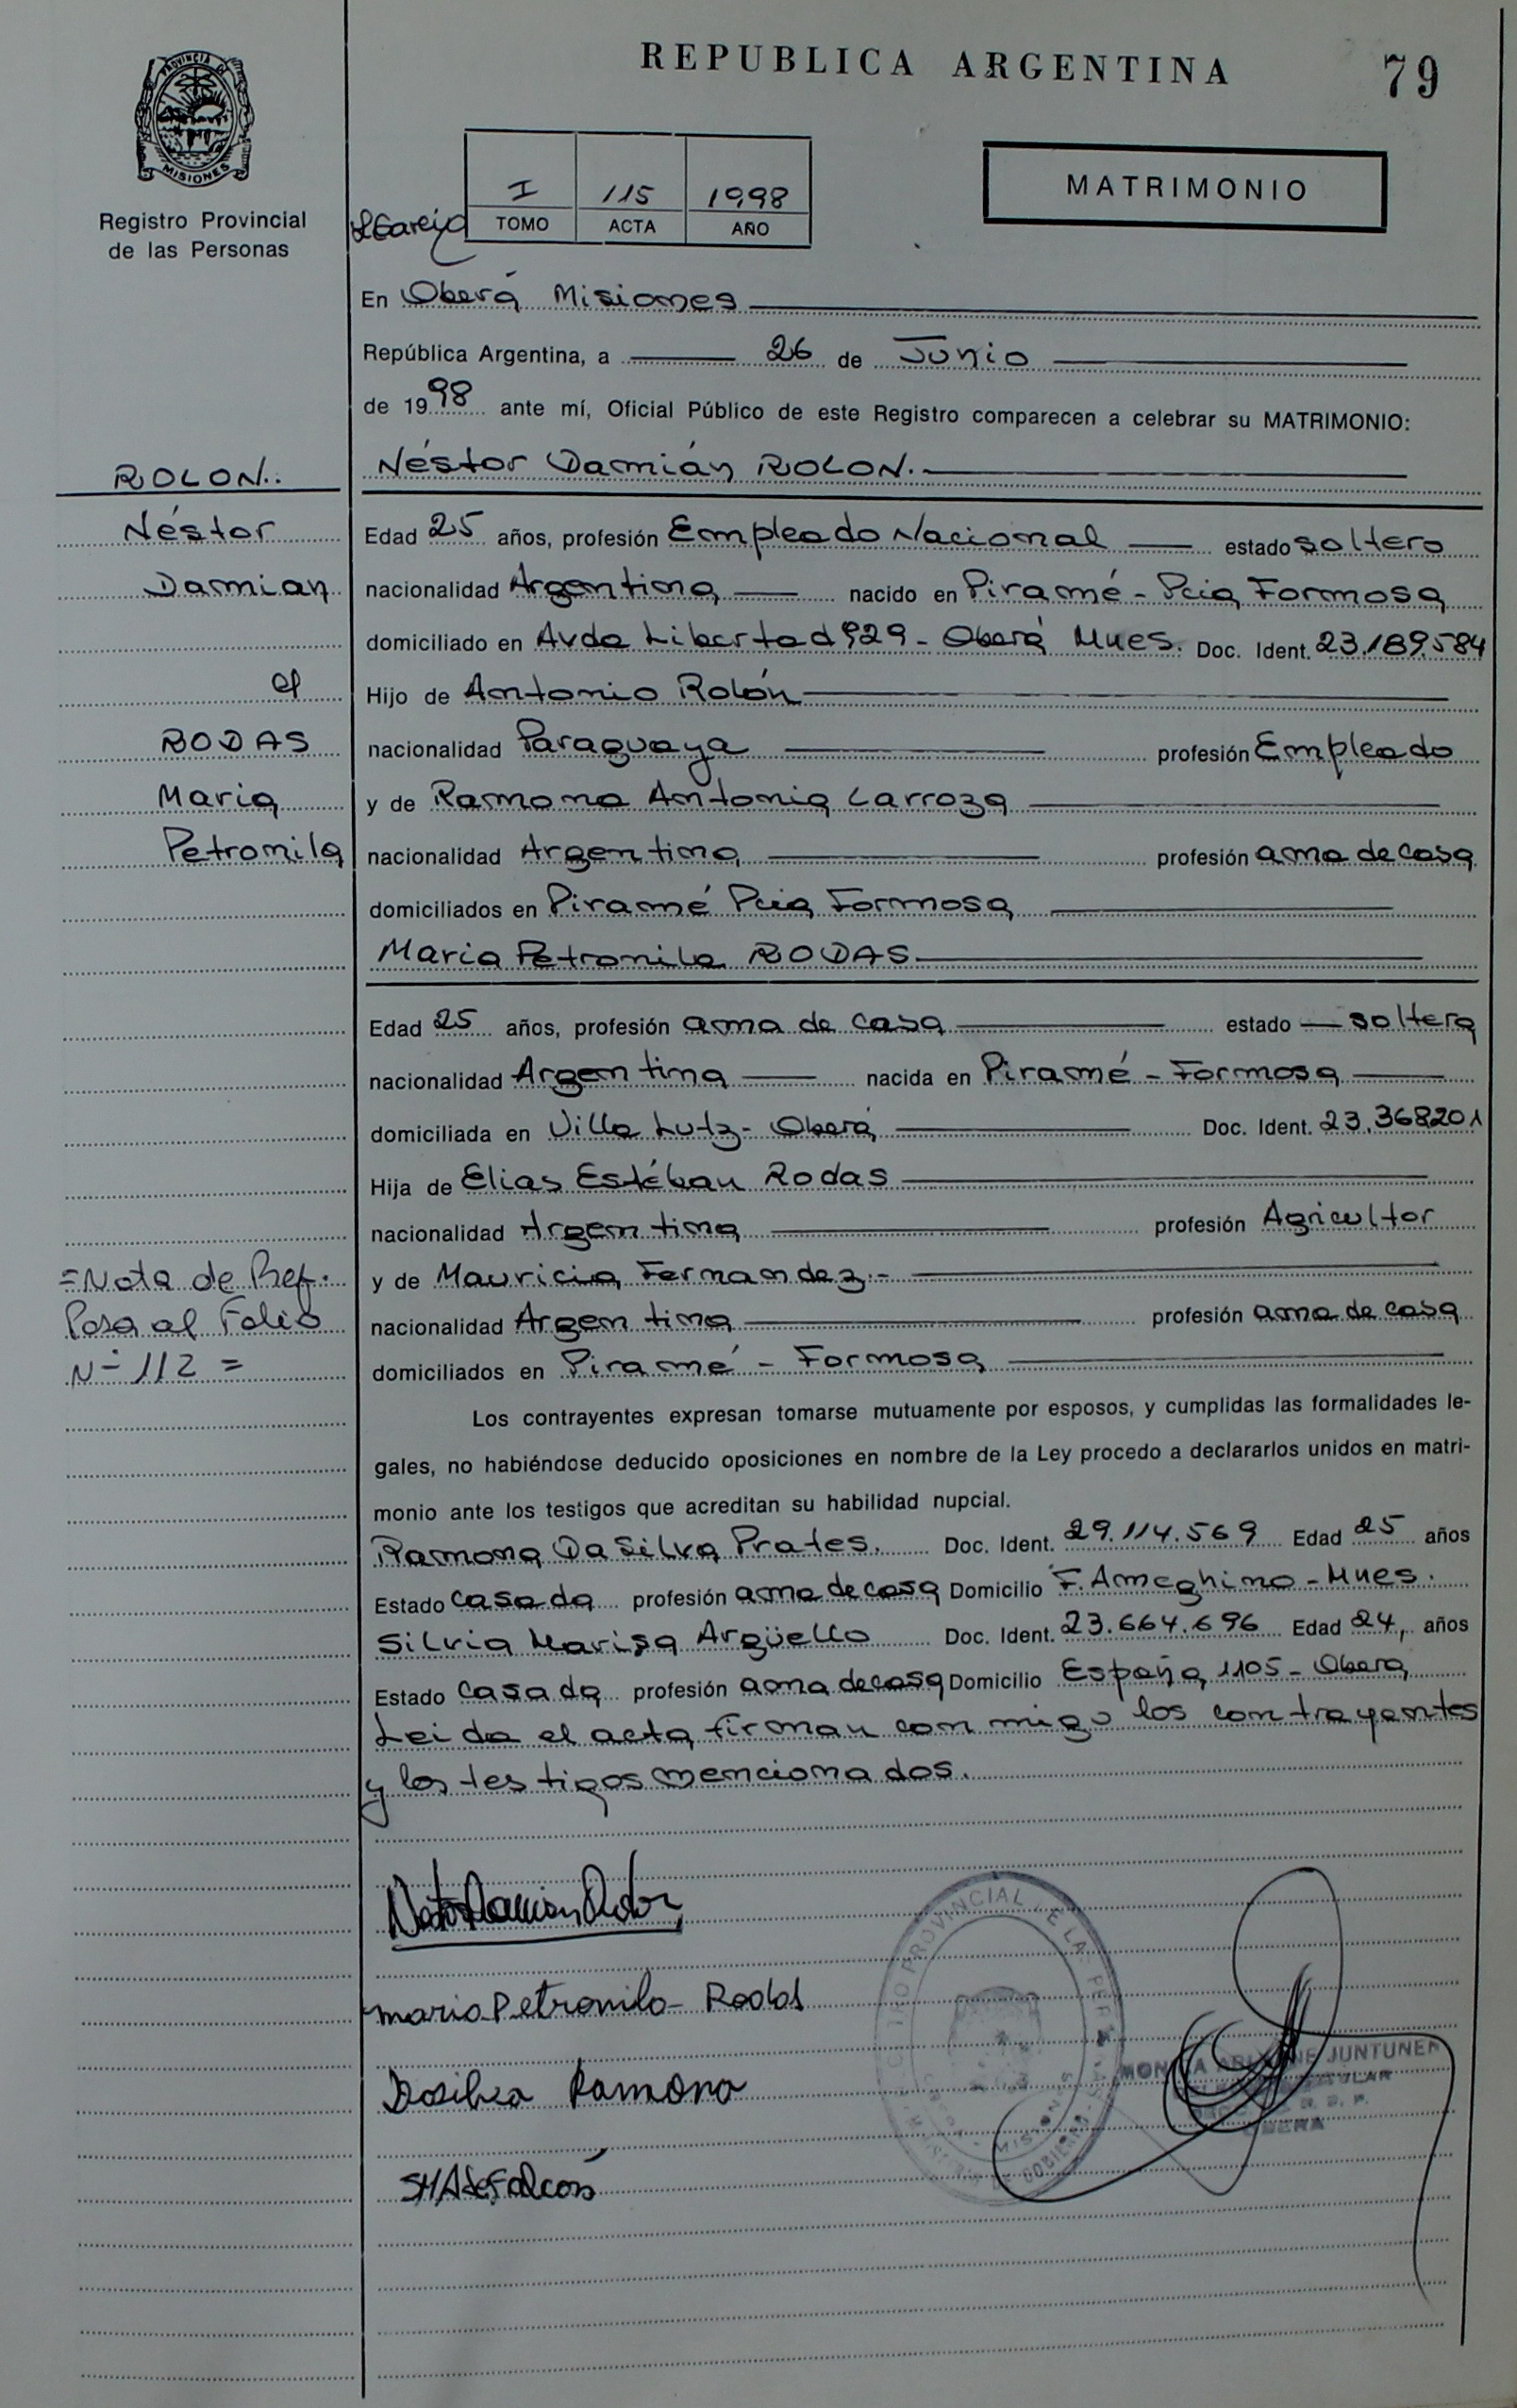 REPUBLICA ARGENTINA
79
PROVINCIA DE
MISIONES
Registro Provincial
de las Personas
I 115 1998
TOMO ACTA AÑO
MATRIMONIO
En Oberá Misiones
República Argentina, a 26 de Junio
de 1998 ante mí, Oficial Público de este Registro comparecen a celebrar su MATRIMONIO:
ROLON..
Néstor
Damian
el
RODAS
Maria
Petromila
=Nota de Ref.
Pasa al Folio
Nº 112 =
Néstor Damián ROLON.
Edad 25 años, profesión Empleado Nacional estado soltero
nacionalidad Argentina nacido en Piramé - Pcia Formosa
domiciliado en Avda Libertad 929 - Oberá Mnes. Doc. Ident. 23.189.584
Hijo de Antonio Rolón
nacionalidad Paraguaya profesión Empleado
y de Ramona Antonia Larroza
nacionalidad Argentina profesión ama de casa
domiciliados en Piramé Pcia Formosa
Maria Petronila RODAS
Edad 25 años, profesión ama de casa estado soltera
nacionalidad Argentina nacida en Piramé - Formosa
domiciliada en Villa Lutz - Oberá Doc. Ident. 23.368201
Hija de Elias Estéban Rodas
nacionalidad Argentina profesión Agricultor
y de Mauricia Fernandez.-
nacionalidad Argentina profesión ama de casa
domiciliados en Piramé - Formosa
Los contrayentes expresan tomarse mutuamente por esposos, y cumplidas las formalidades le-
gales, no habiéndose deducido oposiciones en nombre de la Ley procedo a declararlos unidos en matri-
monio ante los testigos que acreditan su habilidad nupcial.
Ramona DaSilva Prates. Doc. Ident. 29.114.569 Edad 25 años
Estado casada profesión ama de casa Domicilio F. Ameghino - Mnes.
Silvia Marisa Argüello Doc. Ident. 23.664.696 Edad 24, años
Estado casada profesión ama de casa Domicilio España 1105 - Obera
Leida el acta, firman conmigo los contrayentes
y los testigos mencionados.
Nestor Damian Rolon
maria Petronila Rodas
Dasilva Ramona
SMA de Falcon
PROVINCIAL DE LAS PER
MISIONES
DE GOBIERNO
JUNTUNEN
TITULAR
OBERA